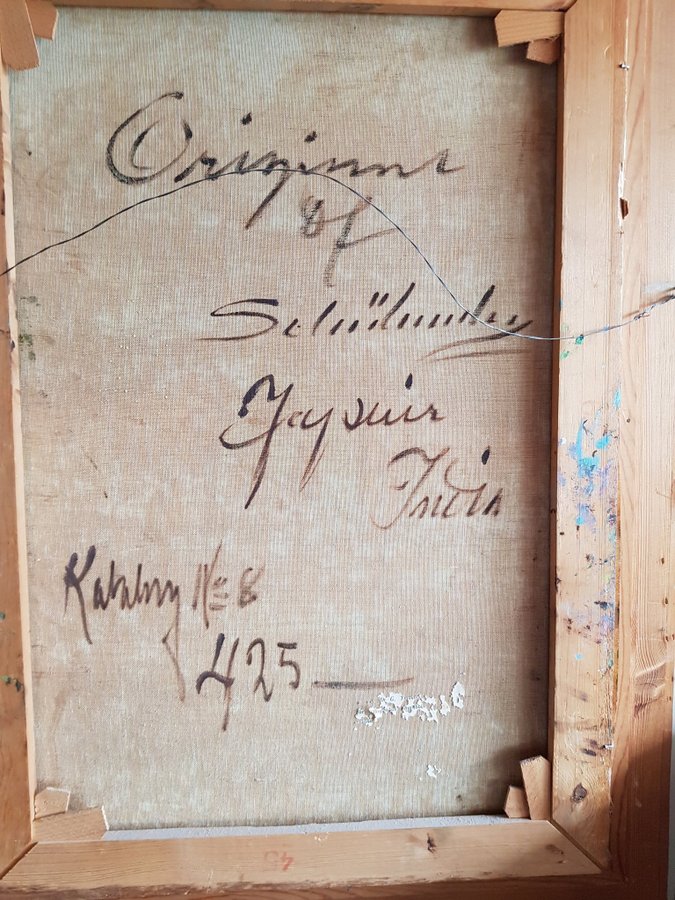 Original
of
Jaypuir
India
Katalog No 8
425 —
45